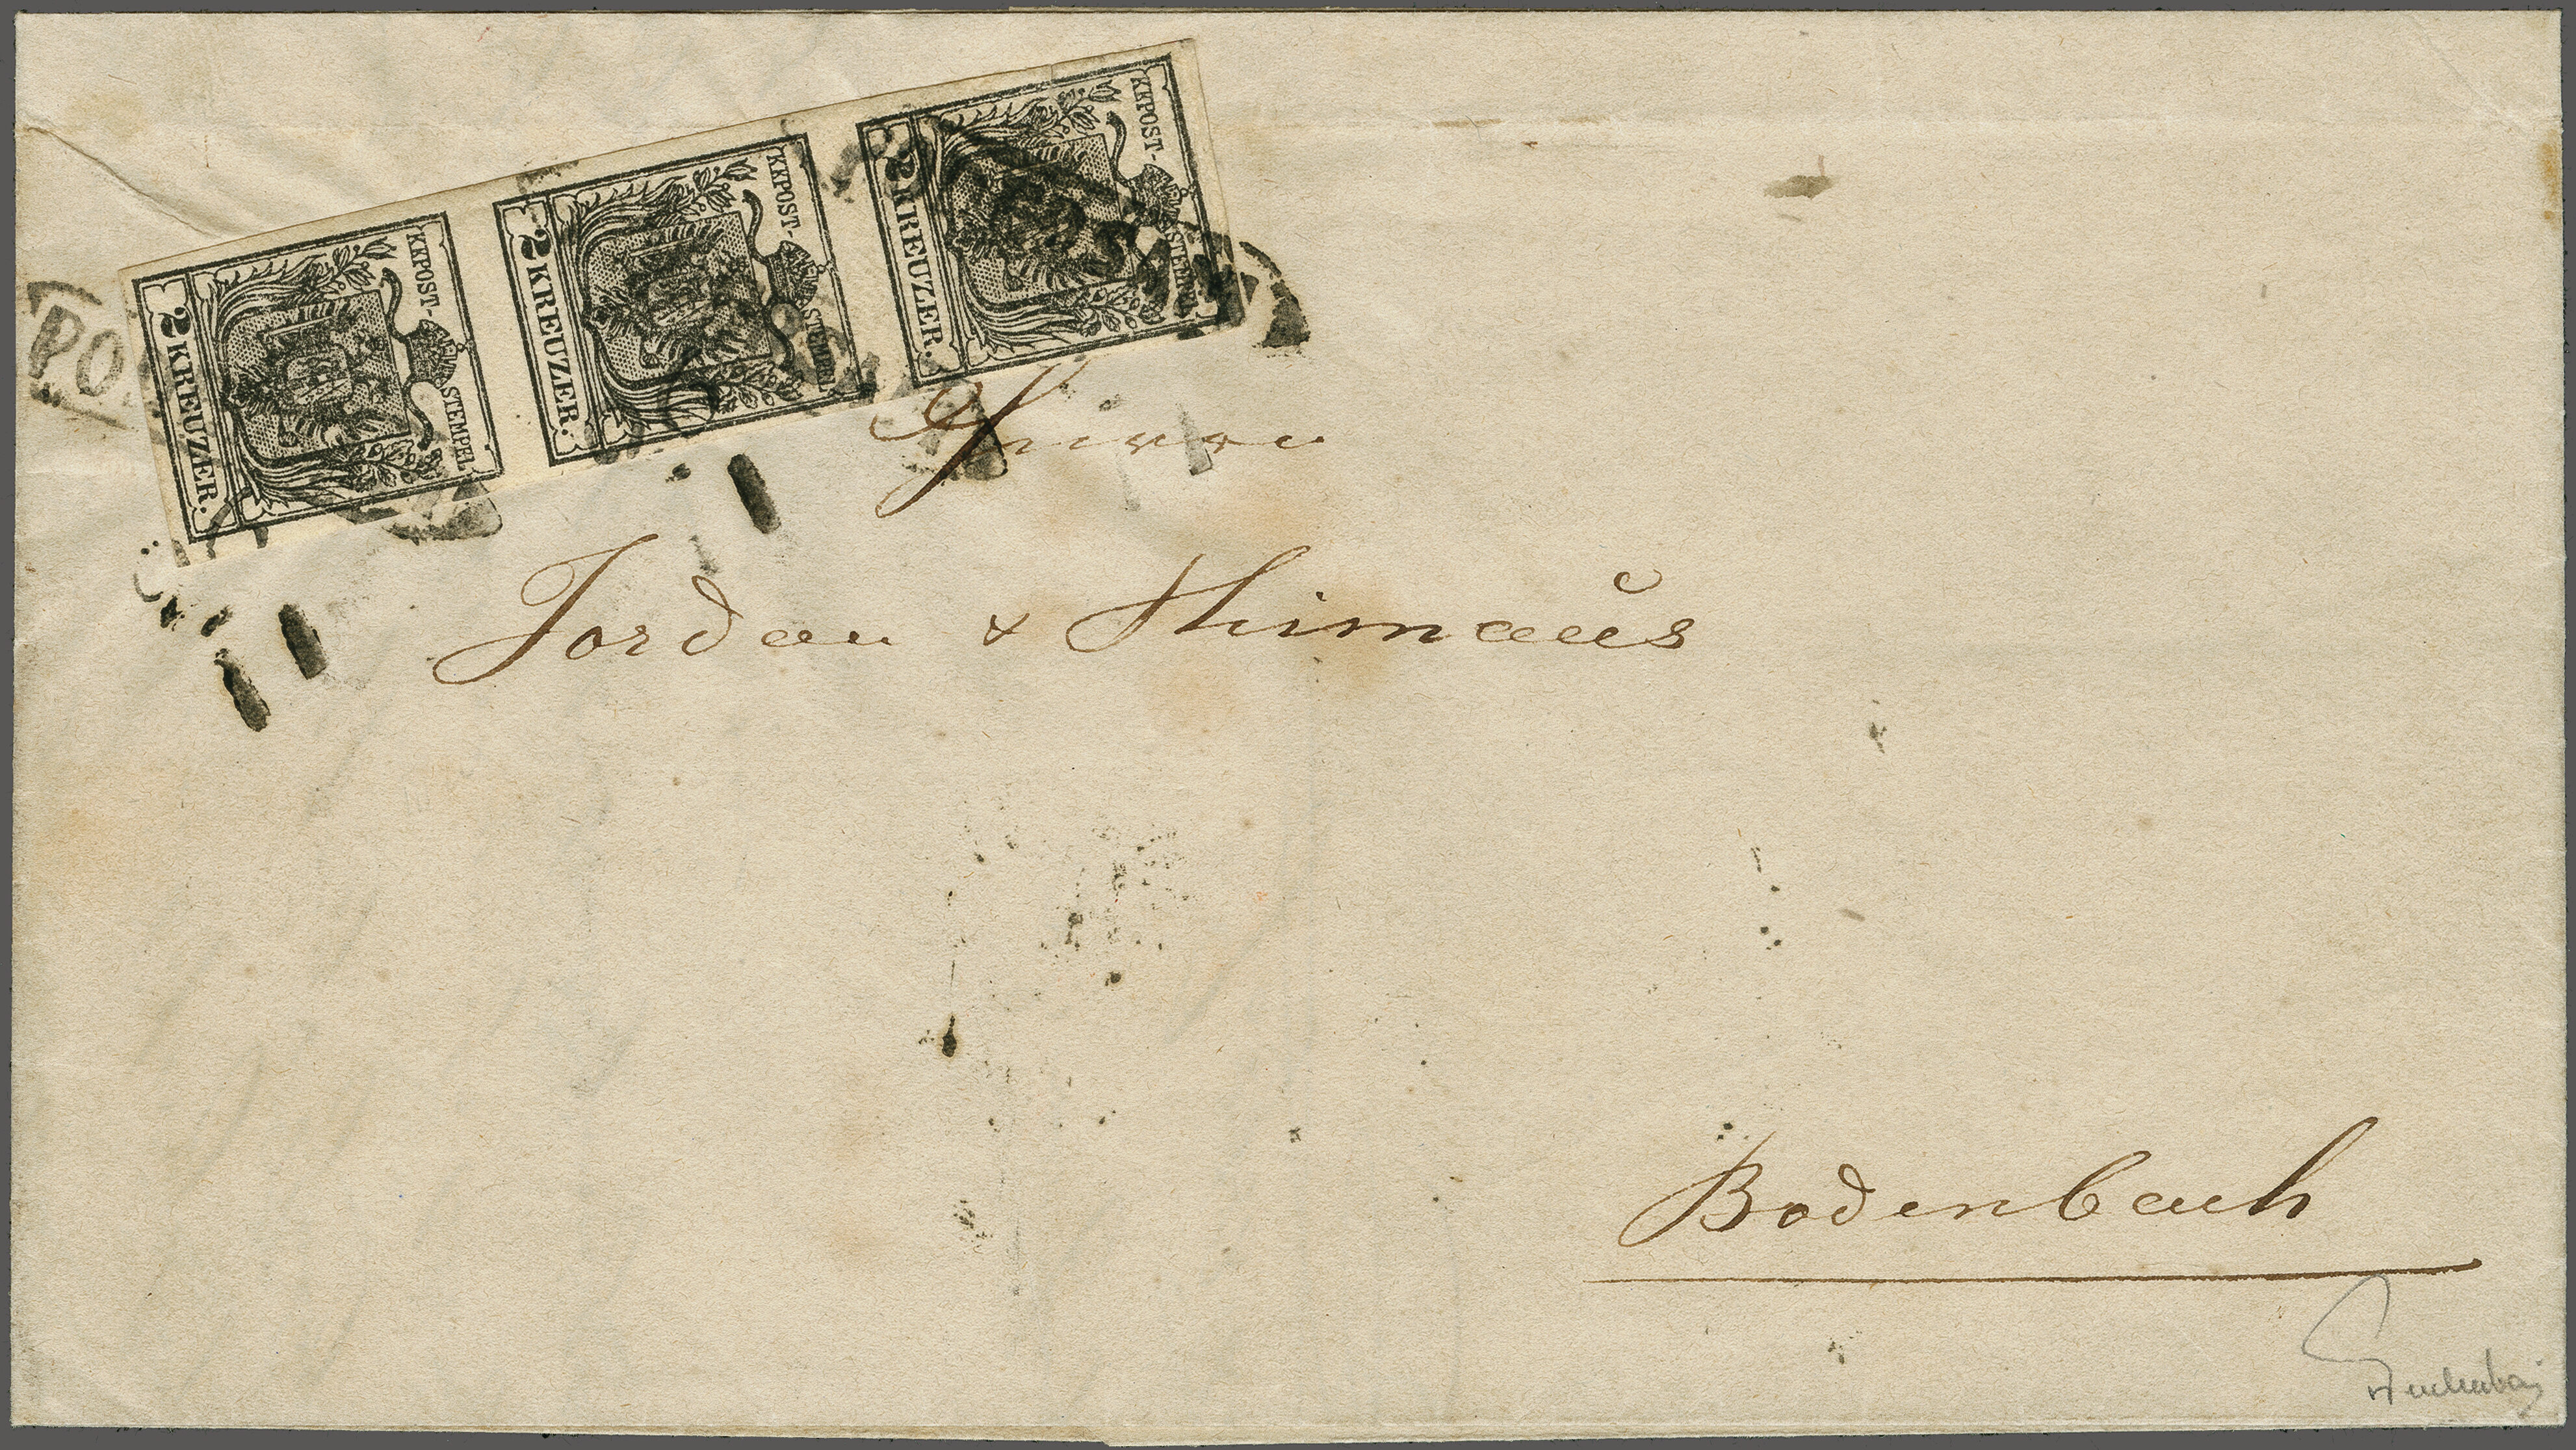 KKPOST-STEMPEL
2 KREUZER.
KKPOST-STEMPEL
2 KREUZER.
KKPOST-STEMPEL
2 KREUZER.
PO
Herrn
Jordan & Thimaŭs
Bodenbach